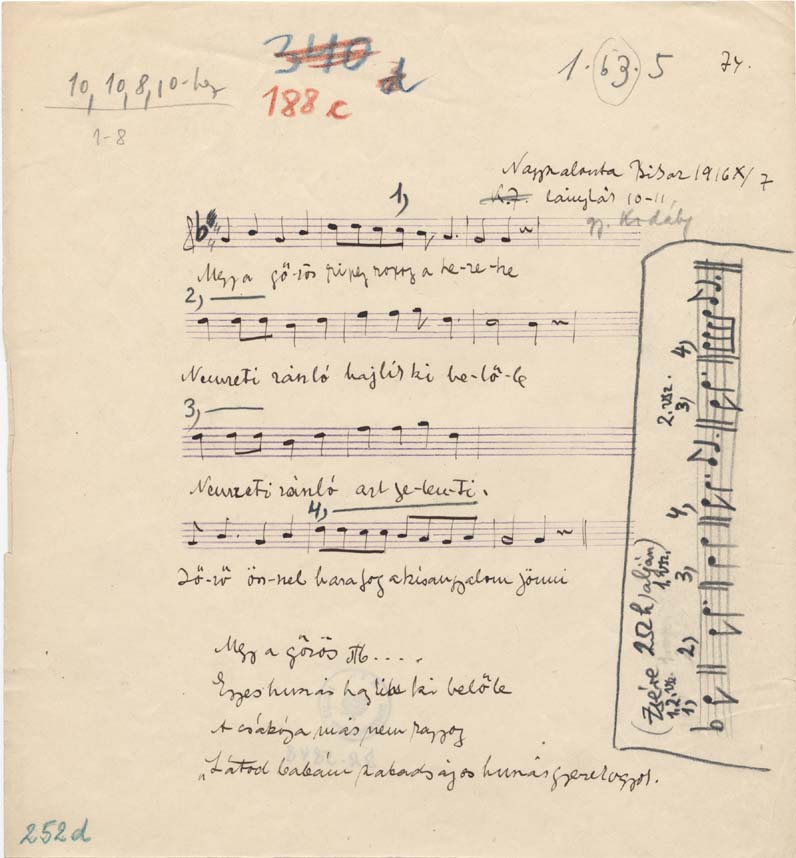 340 d
188 c
1. 63. 5
74.
10, 10, 8, 10-hez
1-8
Nagyszalonta Bihar 1916 X/7
lányhás 10-11,
gy. Kodály
1)
Megy a gő-zös ripeg ropog a ke-re-ke
2)
Nemzeti zászló hajlis ki be-lő-le
3)
Nemzeti zászló azt je-len-ti,
4)
Jö-vő ősz-szel haza fog a kisangyalom jönni
Megy a gőzös stb....
Egyes huszár hajlik ki belőle
A csákója más nem ragyog
„Látod babám szabadságos huszár gyerek vagyok.
(Zsére 2Ωh) alján)
1.2. vsz. 1) 2) 1. vsz. 3) 4) 2. vsz. 3) 4)
252d